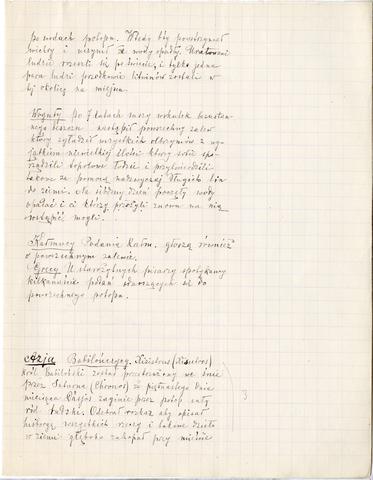 po wodach potopu. Wtedy bóg powstrzymał
wichry i uczynił że wody opadły. Uratowani
ludzie rozeszli się po świecie, i tylko jedna
para ludzi przodkowie litwinów została w
tej okolicy na miejscu.
Woguły po 7 latach suszy wskutek
nastąpił powszechny zalew
który zgładził wszystkich olbrzymów z wy-
jątkiem niewielkiej ilości którzy sobie spo-
rządzili topolowe łodzie i przytwierdzili
takowe za pomocą nadzwyczaj długich lin
do ziemi. Na siódmy dzień poczęły wody
opadać i ci którzy przeżyli znowu na nią
wstąpić mogli.
Kałmucy Podania Kałm. głoszą również
o powszechnym zalewie.
Grecy U starożytnych pisarzy spotykamy
kilkanaście podań odnoszących się do
powszechnego potopu.
Azja Babilończycy. Xisistros (Xisutros)
król Babiloński został przestrzeżony we śnie
przez Saturna (Chronos) że piętnastego dnia
miesiąca Daisjos zaginie przez potop cały
ród ludzki. Odebrał rozkaz aby opisał
historję wszystkich rzeczy i takowe dzieło
w ziemi głęboko zakopał przy mieście
3